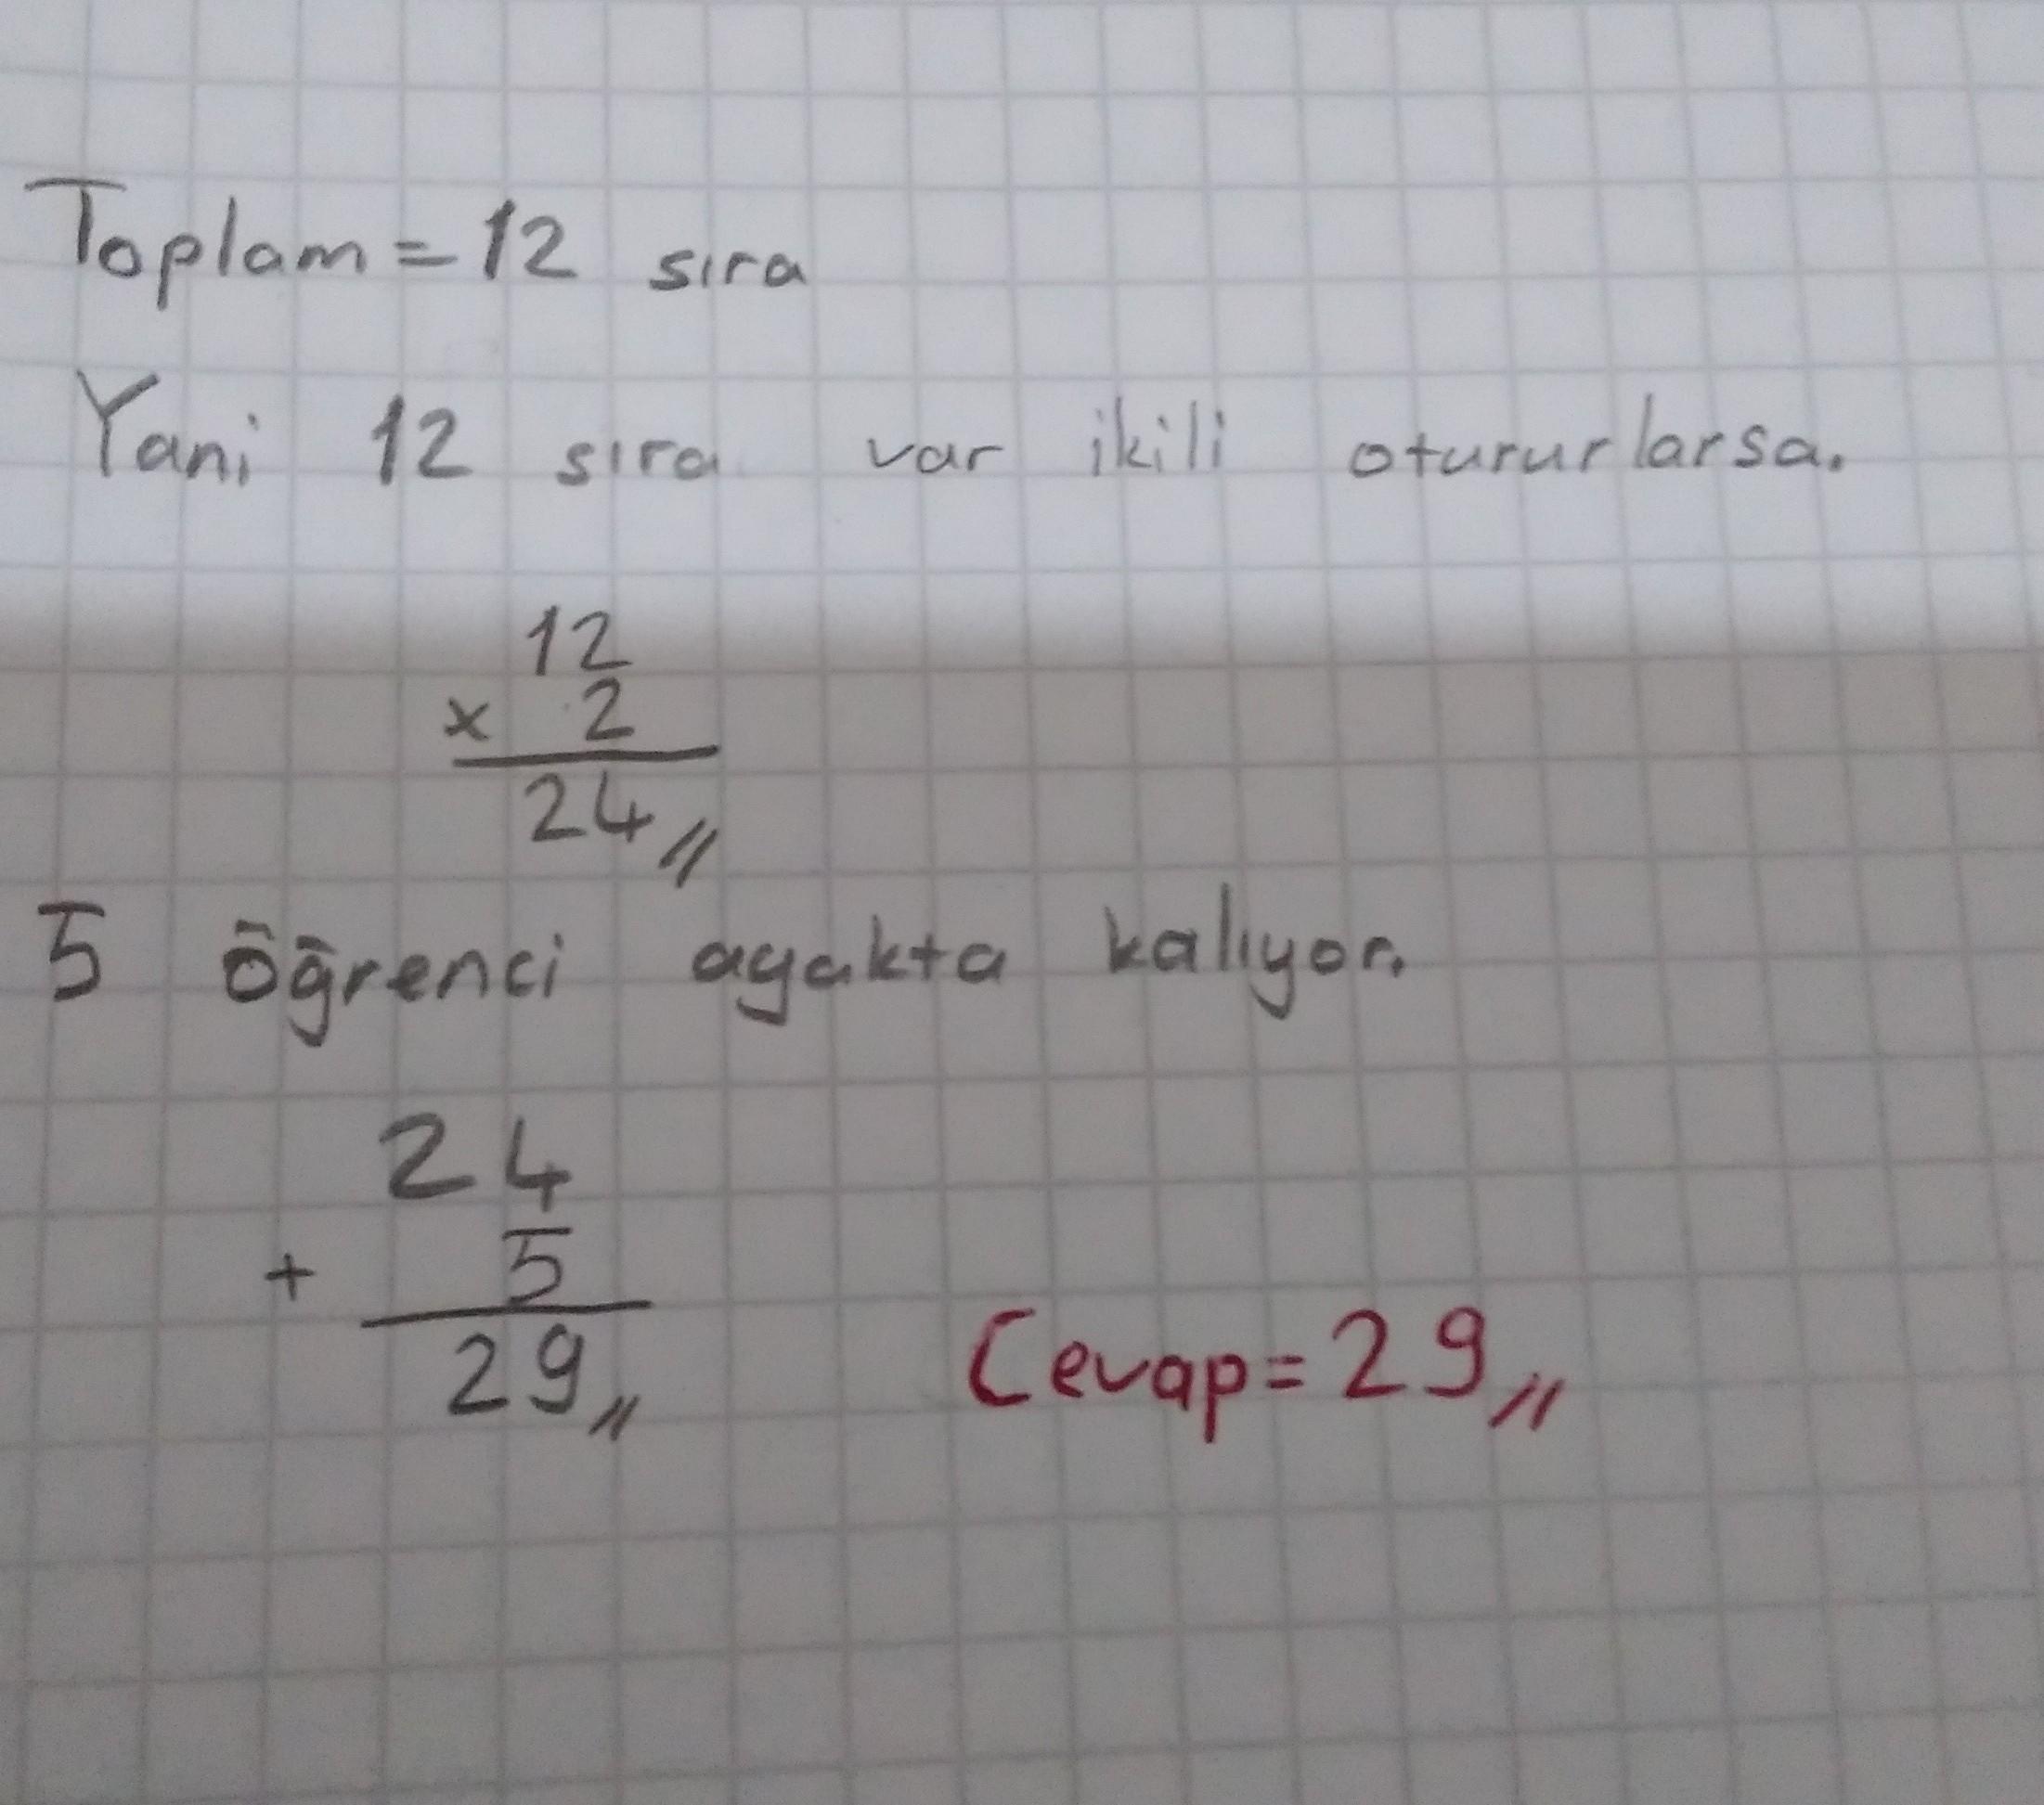 Toplam = 12 sıra
Yani 12 sıra var ikili otururlarsa.
12
x 2
24 //
5 öğrenci ayakta kalıyor.
24
+ 5
29 //
Cevap = 29 //